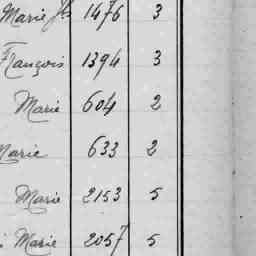 Marie Js 1476 3
François 1394 3
Marie 604 2
Marie 633 2
Marie 2153 5
Marie 2057 5